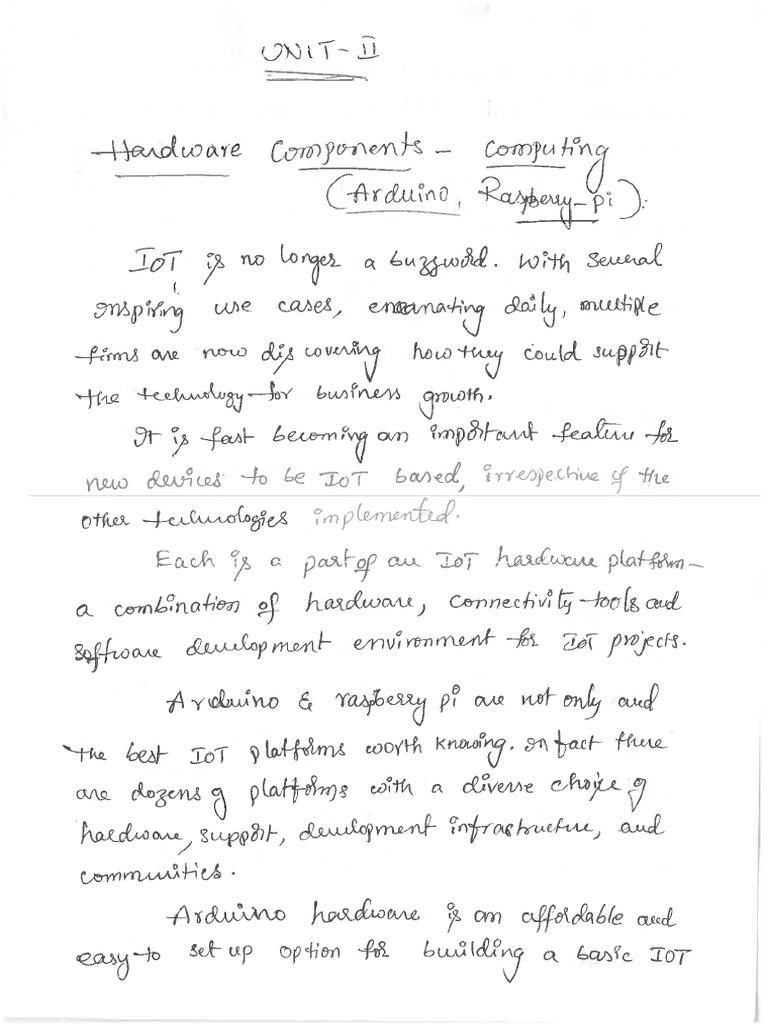 UNIT-II
Hardware Components - Computing
(Arduino, Raspberry-pi):
IOT is no longer a buzzword. With several
inspiring use cases, emanating daily, multiple
firms are now discovering how they could support
the technology for business growth.
It is fast becoming an important feature for
new devices to be IOT based, irrespective of the
other technologies implemented.
Each is a part of an IOT hardware platform -
a combination of hardware, connectivity tools and
software development environment for IOT projects.
Arduino & raspberry pi are not only and
the best IOT platforms worth knowing. In fact there
are dozens of platforms with a diverse choice of
hardware, support, development infrastructure, and
communities.
Arduino hardware is an affordable and
easy-to set up option for building a basic IOT